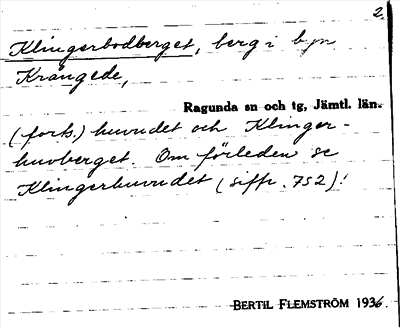 2.
Klingerbodberget, berg i byn
Krångede,
Ragunda sn och tg, Jämtl. län.
(forts.) huvudet och Klinger-
huvberget. Om förleden se
Klingerhuvudet (siffr. 752)!
BERTIL FLEMSTRÖM 1936.